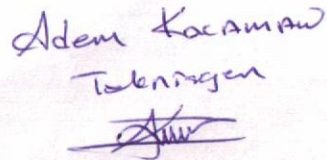 Adem Kocaman
Teknisyen